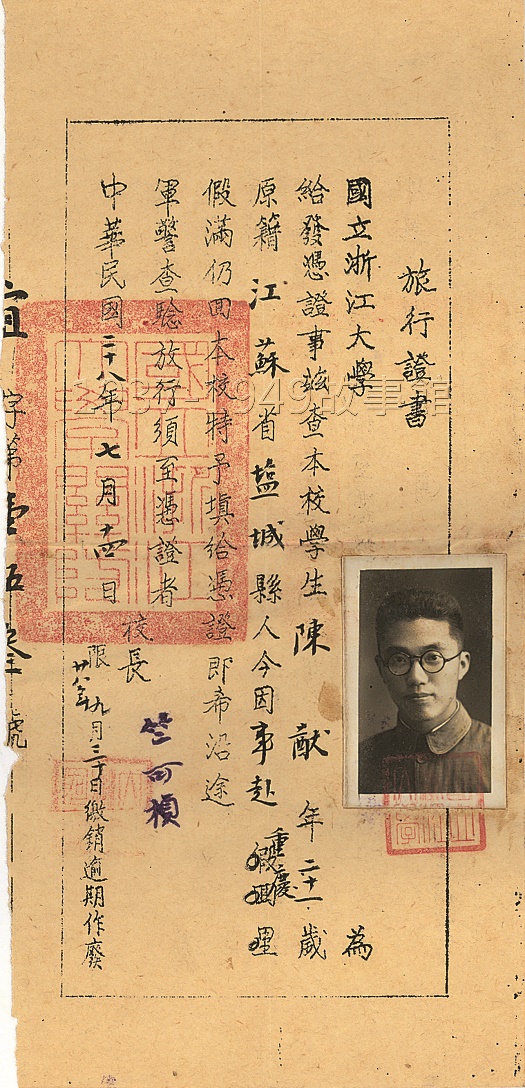 旅行證書
國立浙江大學 為
給發憑證事茲查本校學生 陳献 年二十一歲
原籍 江蘇省 塩城縣人今因事赴 重慶
假滿仍回本校特予填給憑證即希沿途
軍警查驗放行須至憑證者
校長 竺可楨
中華民國二十八年七月十四日
限廿八年九月三十日繳銷逾期作廢
字第壹伍 號
1937-1949故事館